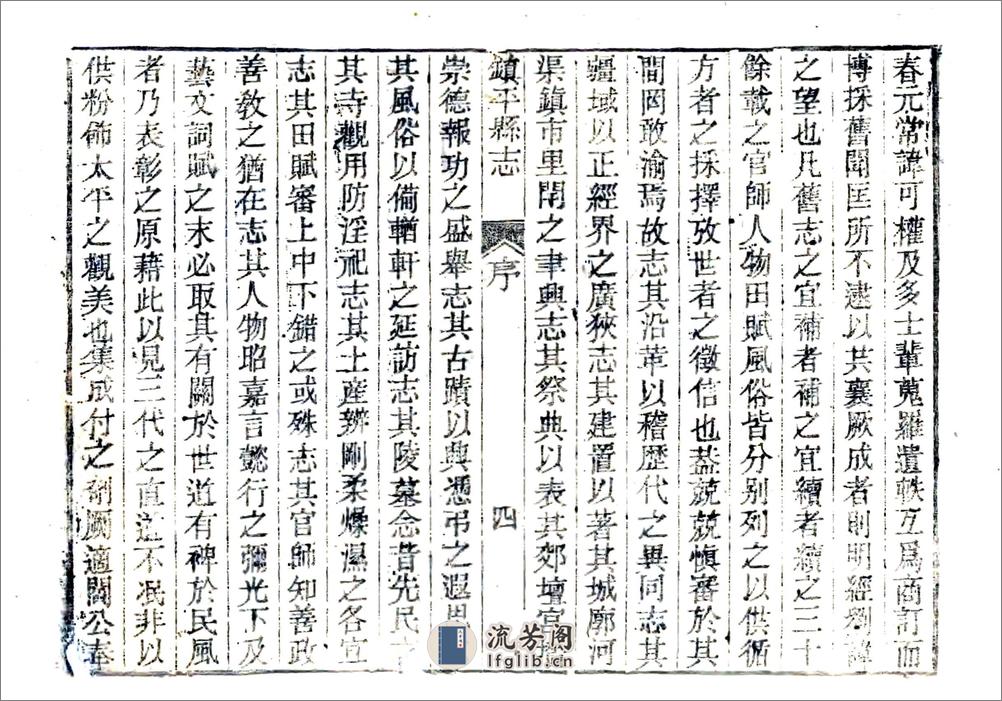 春元常諱可權及多士輩蒐羅遺軼互爲商訂而
博採舊聞匡所不逮以共襄厥成者則明經劉諱
之望也凡舊志之宜補者補之宜續者續之三十
餘載之官師人物田賦風俗皆分别列之以供循
方者之採擇攷世者之徵信也葢兢兢愼審於其
間罔敢渝焉故志其沿革以稽歷代之異同志其
疆域以正經界之廣狹志其建置以著其城廓河
渠鎭市里閈之聿興志其祭典以表其郊壇宮
鎭平縣志
序
四
崇德報功之盛舉志其古蹟以興憑弔之遐思
其風俗以備輶軒之延訪志其陵墓念昔先民
其寺觀用防淫祀志其土産辨剛柔燥濕之各宜
志其田賦審上中下錯之或殊志其官師知善政
善敎之猶在志其人物昭嘉言懿行之彌光下及
藝文詞賦之末必取其有關於世道有裨於民風
者乃表彰之原藉此以見三代之直道不泯非以
供粉飾太平之觀美也集成付之剞劂適閻公奉
流芳阁
lfglib.cn